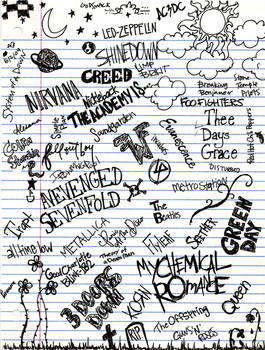 Godsmack
AC/DC
LED-ZEPPELIN
SHINEDOWN
System of a Down
LIMP BIZKIT
CREED
Stone Temple Pilots
Breaking Benjamin
NIRVANA
Nickelback
THE ACADEMY IS
FOO FIGHTERS
Soundgarden
Evanescence
Thee
Days
Grace
Fall Out Boy
DISTURBED
MUDVAYNE
metro station
AVENGED
SEVENFOLD
The
Beatles
Trapt
GREEN
DAY
METALLICA
FLYLEAF
SEETHER
all time low
Theory of a Deadman
Good Charlotte
Blink-182
MY CHEMICAL
ROMANCE
3 DOORS
DOWN
KORN
Queen
The Offspring
RIP
GUNS N' ROSES